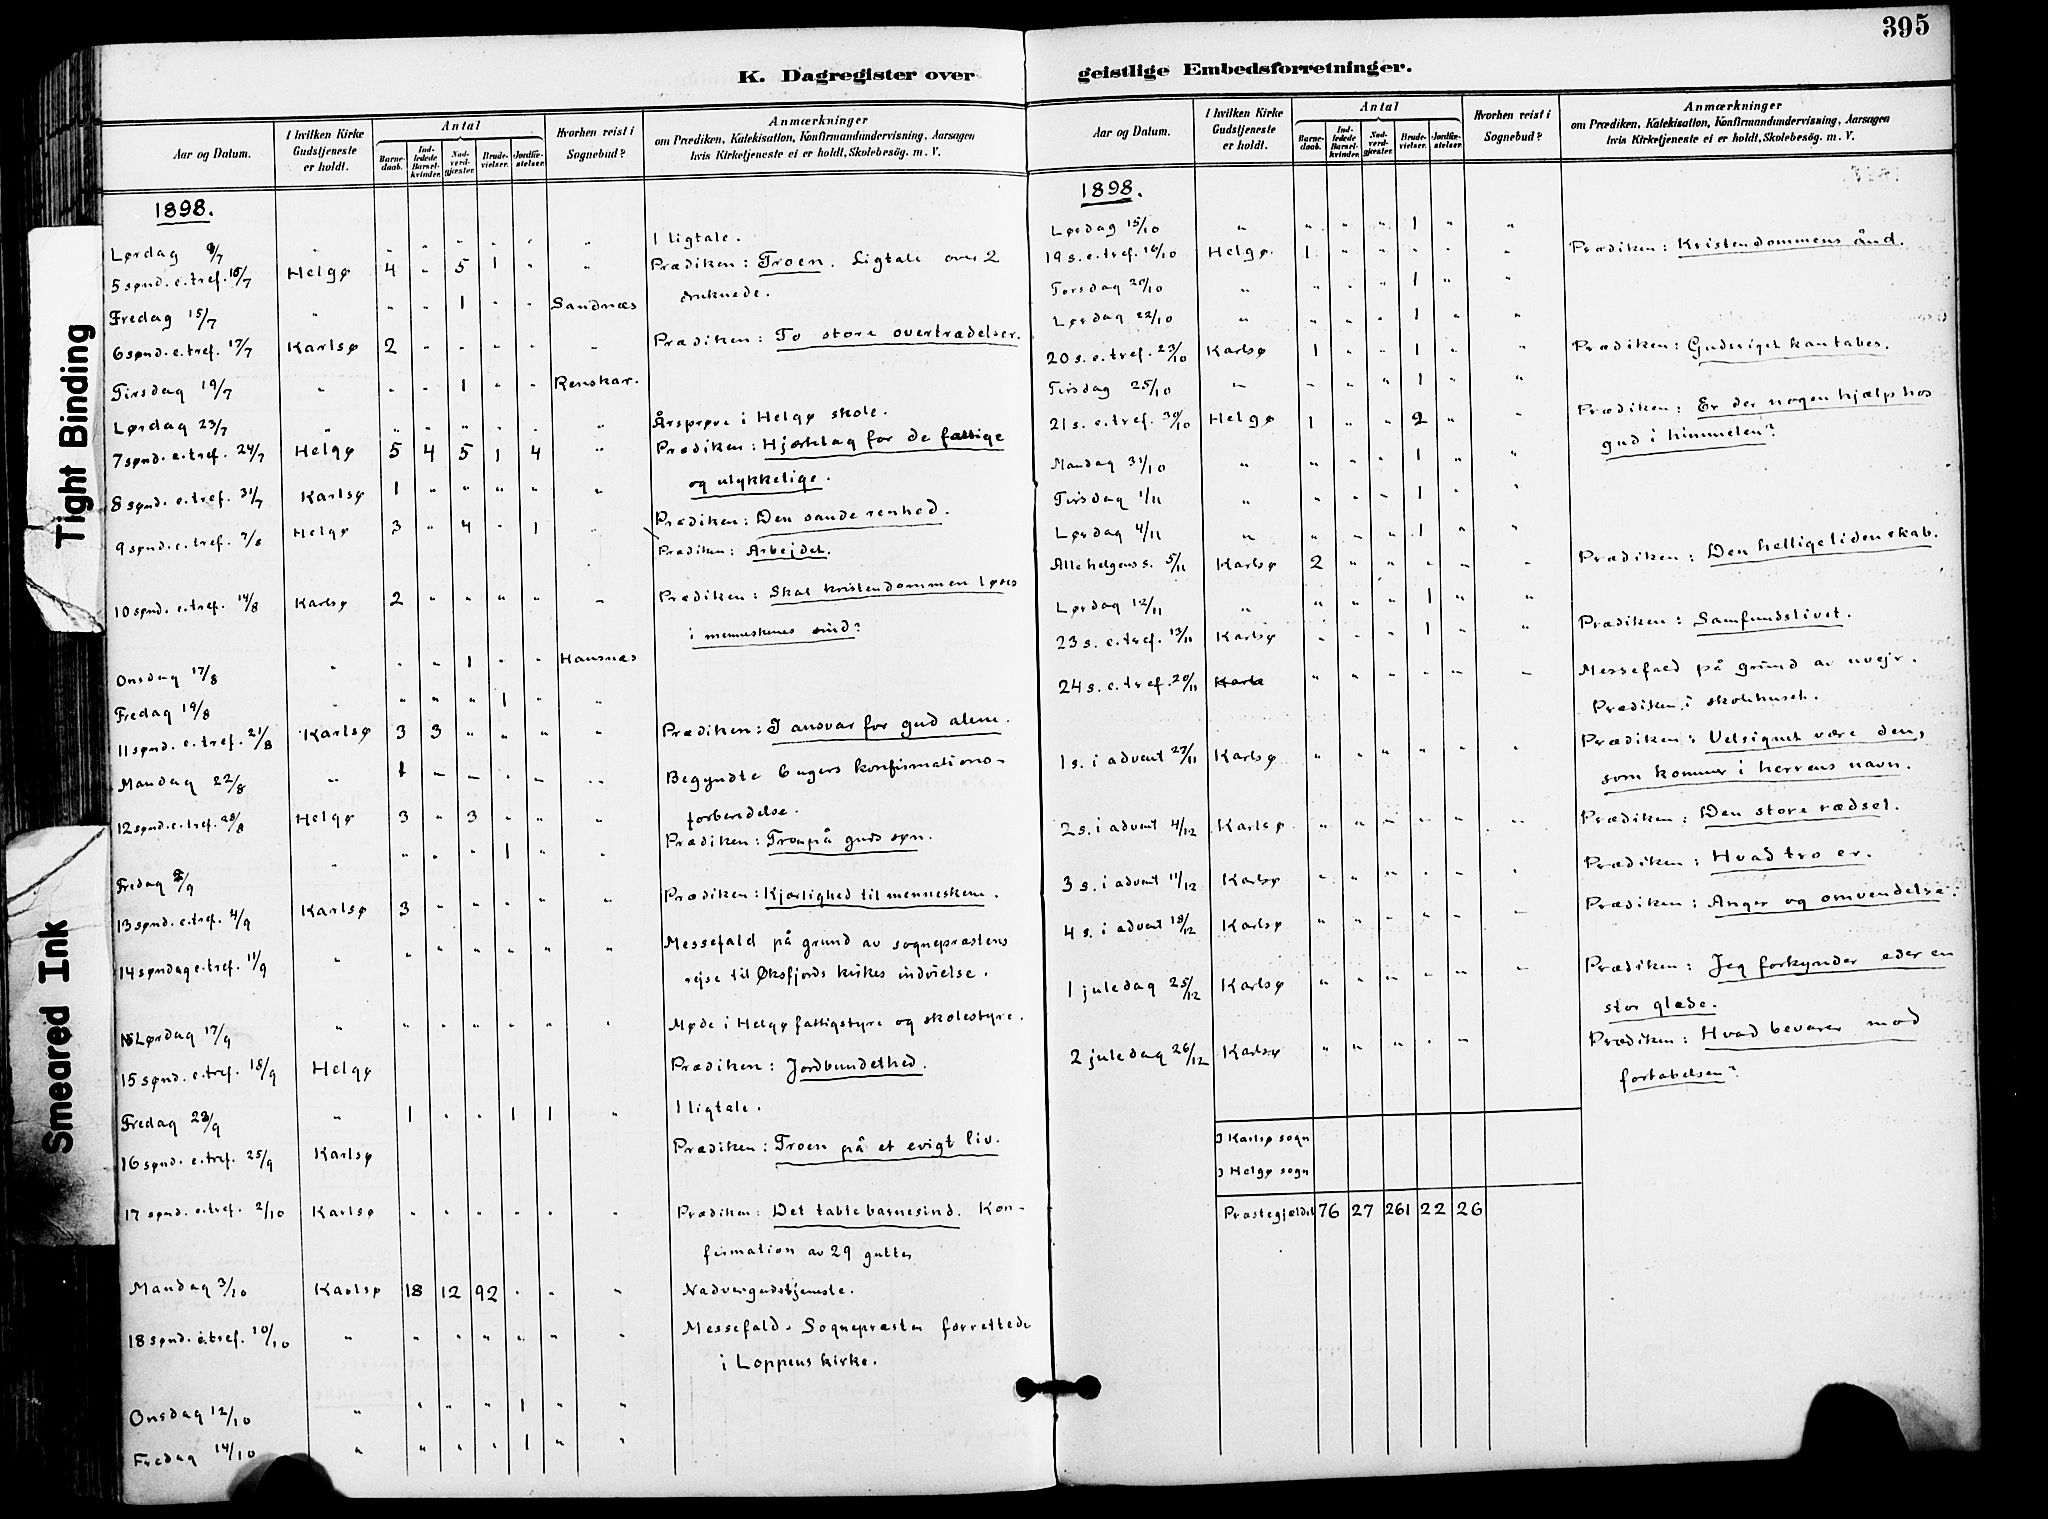 395
K. Dagregister over
geistlige Embedsforretninger.
Tight Binding
Smeared Ink
Aar og Datum. | I hvilken Kirke Gudstjeneste er holdt. | Antal | Barne-daab. | Ind-ledede Barsel-kvinder. | Nad-verd-gjæster. | Brude-vielser. | Jordfæ-stelser. | Hvorhen reist i Sognebud? | Anmærkninger om Prædiken, Katekisation, Konfirmandundervisning, Aarsagen hvis Kirketjeneste ei er holdt, Skolebesög. m. V.
1898.
Lørdag 9/7 " " " " " " " 1 ligtale.
5 sønd. e. tref. 10/7 Helgø 4 " 5 1 " " Prædiken: Troen. Ligtale over 2
druknede.
Fredag 15/7 " " " 1 " " Sandnæs
6 sønd. e. tref. 17/7 Karlsø 2 " " " " " Prædiken: To store overtrædelser.
Tirsdag 19/7 " " " 1 " " Renskar.
Lørdag 23/7 " " " " " " " Årsprøve i Helgø skole.
7 sønd. e. tref. 24/7 Helgø 5 4 5 1 4 " Prædiken: Hjærtelag for de fattige
og ulykkelige.
8 sønd. e. tref. 31/7 Karlsø 1 " " " " " Prædiken: Den sande renhed.
9 sønd. e. tref. 7/8 Helgø 3 " 4 " 1 " Prædiken: Arbejdet.
10 sønd. e. tref. 14/8 Karlsø 2 " " " " " Prædiken: Skal kristendommen løses
i menneskenes sind?
Onsdag 17/8 " " " 1 " " Hansnæs
Fredag 19/8 " " " " 1 " "
11 sønd. e. tref. 21/8 Karlsø 3 3 " " " " Prædiken: I ansvar for gud alene.
Mandag 22/8 " 1 " " " " " Begyndte 6 ugers konfirmations-
forberedelse.
12 sønd. e. tref. 28/8 Helgø 3 " 3 " " " Prædiken: Tro på guds søn.
Fredag 2/9 " " " " 1 " "
13 sønd. e. tref. 4/9 Karlsø 3 " " " " " Prædiken: Kjærlighed til menneskene.
14 søndag e. tref. 11/9 " " " " " " " Messefald på grund av sognepræstens
rejse til Øksfjords kirkes indvielse.
Lørdag 17/9 " " " " " " " Møde i Helgø fattigstyre og skolestyre.
15 sønd. e. tref. 18/9 Helgø Prædiken: Jordbundethed.
Fredag 23/9 " 1 " " 1 1 " 1 ligtale.
16 sønd. e. tref. 25/9 Karlsø Prædiken: Troen på et evigt liv.
17 sønd. e. tref. 2/10 Karlsø " " " " " " Prædiken: Det tabte barnesind. Kon-
firmation av 29 gutter
Mandag 3/10 Karlsø 18 12 92 " " " Nadvergudstjeneste.
18 sønd. e. tref. 10/10 " " " " " " " Messefald. Sognepræsten forrettede
i Loppens kirke.
Onsdag 12/10 " " " " 1 " "
Fredag 14/10 " " " " 1 " "
Aar og Datum. | I hvilken Kirke Gudstjeneste er holdt. | Antal | Barne-daab. | Ind-ledede Barsel-kvinder. | Nad-verd-gjæster. | Brude-vielser. | Jordfæ-stelser. | Hvorhen reist i Sognebud? | Anmærkninger om Prædiken, Katekisation, Konfirmandundervisning, Aarsagen hvis Kirketjeneste ei er holdt, Skolebesög. m. V.
1898.
Lørdag 15/10 " " " " 1 " "
19 s. e. tref. 16/10 Helgø. 1 " " " " " Prædiken: Kristendommens ånd.
Torsdag 20/10 " " " " 1 " "
Lørdag 22/10 " " " " 1 " "
20 s. e. tref. 23/10 Karlsø 1 " " 1 " " Prædiken: Gudsriget kan tabes.
Tirsdag 25/10 " " " " 1 " "
21 s. e. tref. 30/10 Helgø 1 " " 2 " " Prædiken: Er der nogen hjælp hos
gud i himmelen?
Mandag 31/10 " " " " 1 " "
Tirsdag 1/11 " " " " 1 " "
Lørdag 4/11 " " " " 1 " "
Alle helgens s. 5/11 Karlsø 2 " " " " " Prædiken: Den hellige lidenskab.
Lørdag 12/11 " " " " 1 " "
23 s. e. tref. 13/11 Karlsø " " " 1 " " Prædiken: Samfundslivet.
24 s. e. tref. 20/11 Karls " " " " " " Messefald på grund av uvejr.
Prædiken i skolehuset.
1 s. i advent 27/11 Karlsø " " " " " " Prædiken: Velsignet være den,
som kommer i herrens navn.
2 s. i advent 4/12 Karlsø " " " " " " Prædiken: Den store rædsel.
3 s. i advent 11/12 Karlsø " " " " " " Prædiken: Hvad tro er.
4 s. i advent 18/12 Karlsø " " " " " " Prædiken: Anger og omvendelse.
1 juledag 25/12 Karlsø " " " " " " Prædiken: Jeg forkynder eder en
stor glæde.
2 juledag 26/12 Karlsø " " " " " Prædiken: Hvad bevarer mod
fortabelsen?
I Karlsø sogn
I Helgø sogn
Præstegjældet 76 27 261 22 26